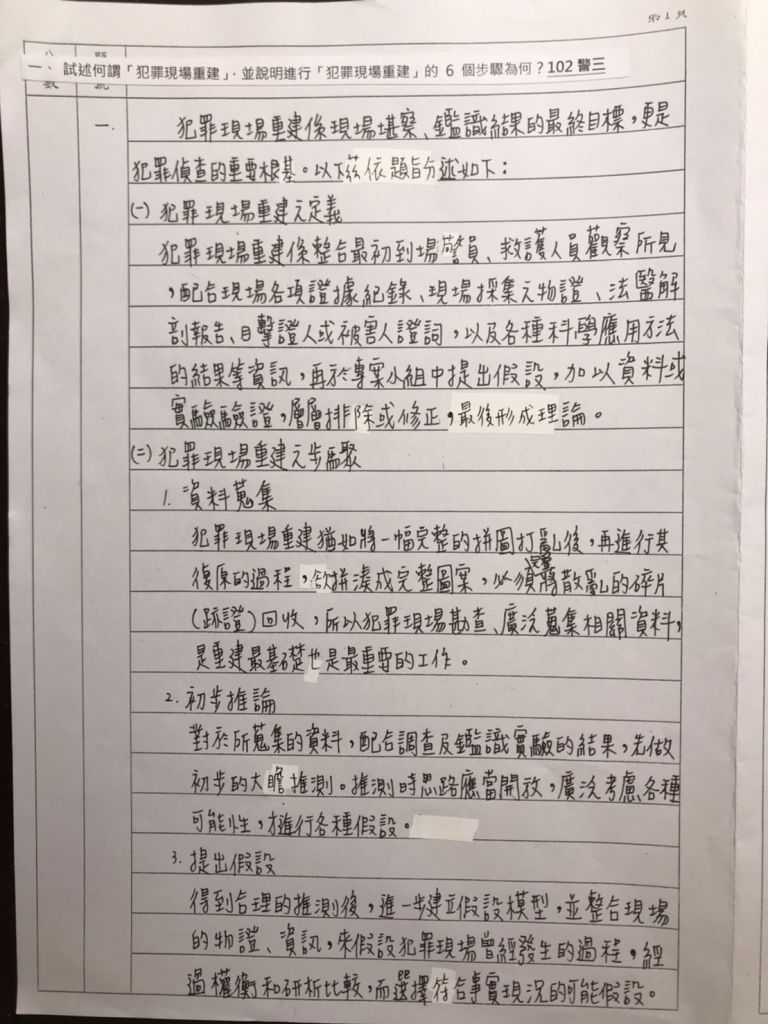 第1頁
一、試述何謂「犯罪現場重建」,並說明進行「犯罪現場重建」的 6 個步驟為何?102 警三
一.
犯罪現場重建係現場堪察、鑑識結果的最終目標,更是
犯罪偵查的重要根基。以下茲依題旨分述如下:
(一) 犯罪現場重建之定義
犯罪現場重建係整合最初到場警員、救護人員觀察所見
,配合現場各項證據紀錄、現場採集之物證、法醫解
剖報告、目擊證人或被害人證詞,以及各種科學應用方法
的結果等資訊,再於專案小組中提出假設,加以資料或
實驗驗證,層層排除或修正,最後形成理論。
(二) 犯罪現場重建之步驟
1. 資料蒐集
犯罪現場重建猶如將一幅完整的拼圖打亂後,再進行其
復原的過程,欲拼湊成完整圖案,必須完整將散亂的碎片
(跡證)回收,所以犯罪現場勘查、廣泛蒐集相關資料,
是重建最基礎也是最重要的工作。
2. 初步推論
對於所蒐集的資料,配合調查及鑑識實驗的結果,先做
初步的大膽推測。推測時思路應當開放,廣泛考慮各種
可能性,才進行各種假設。
3. 提出假設
得到合理的推測後,進一步建立假設模型,並整合現場
的物證、資訊,來假設犯罪現場曾經發生的過程,經
過權衡和研析比較,而選擇符合事實現況的可能假設。